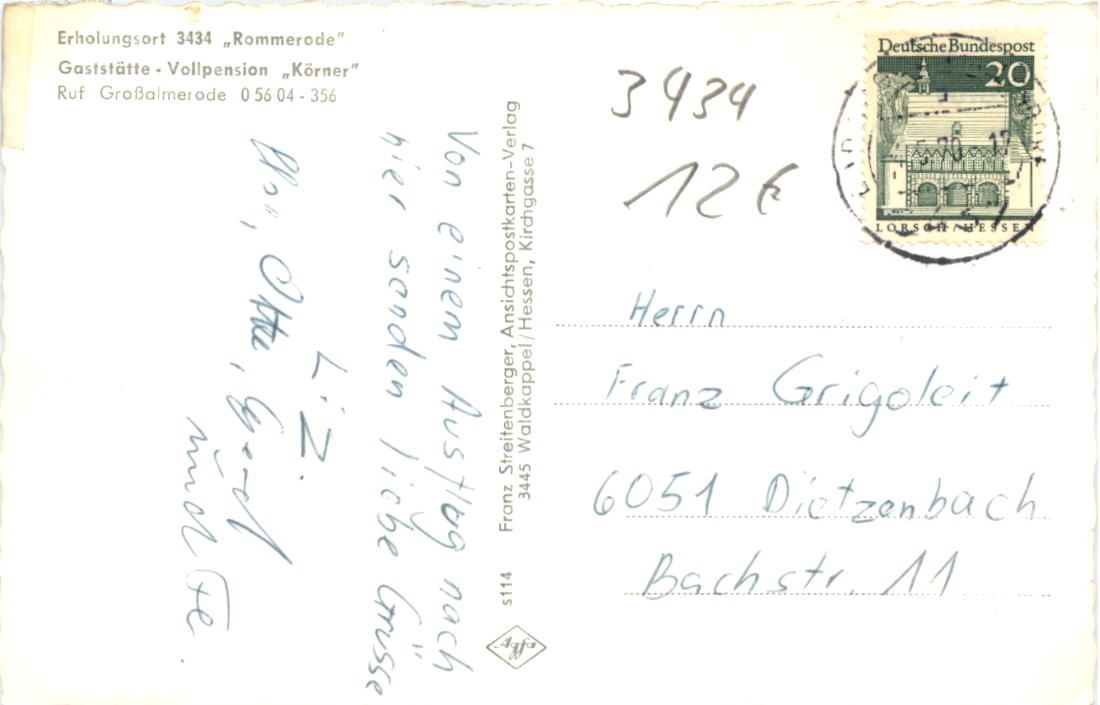 Erholungsort 3434 „Rommerode"
Gaststätte - Vollpension „Körner"
Ruf Großalmerode 0 56 04 - 356
Von einem Ausflug nach
hier senden liebe Grüsse
Liz.
Otto, Gerd
und
Franz Streitenberger, Ansichtspostkarten-Verlag
3445 Waldkappel/Hessen, Kirchgasse 7
s114
Agfa
3434
12 €
Deutsche Bundespost
20
LORSCH/HESSEN
Herrn
Franz Grigoleit
6051 Dietzenbach
Bachstr. 11